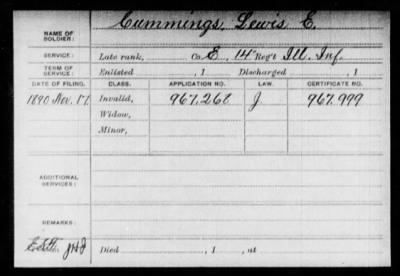 NAME OF SOLDIER: Cummings, Lewis E.
SERVICE: Late rank, Co. E, 14" Reg't Ill. Inf.
TERM OF SERVICE: Enlisted , 1 Discharged , 1
DATE OF FILING. CLASS. APPLICATION NO. LAW. CERTIFICATE NO.
1890 Nov. 17 Invalid, 967,268 J. 967,999
Widow,
Minor,
ADDITIONAL SERVICES:
REMARKS:
Died , 1 , at